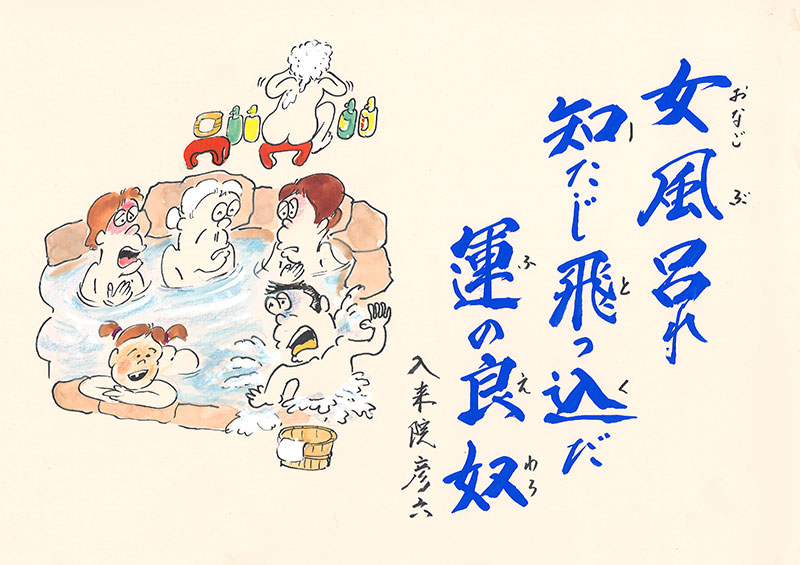 女風呂れ
おなごぶ
知たじ飛っ込だ
しとく
運の良奴
ふえわろ
入来院彦六